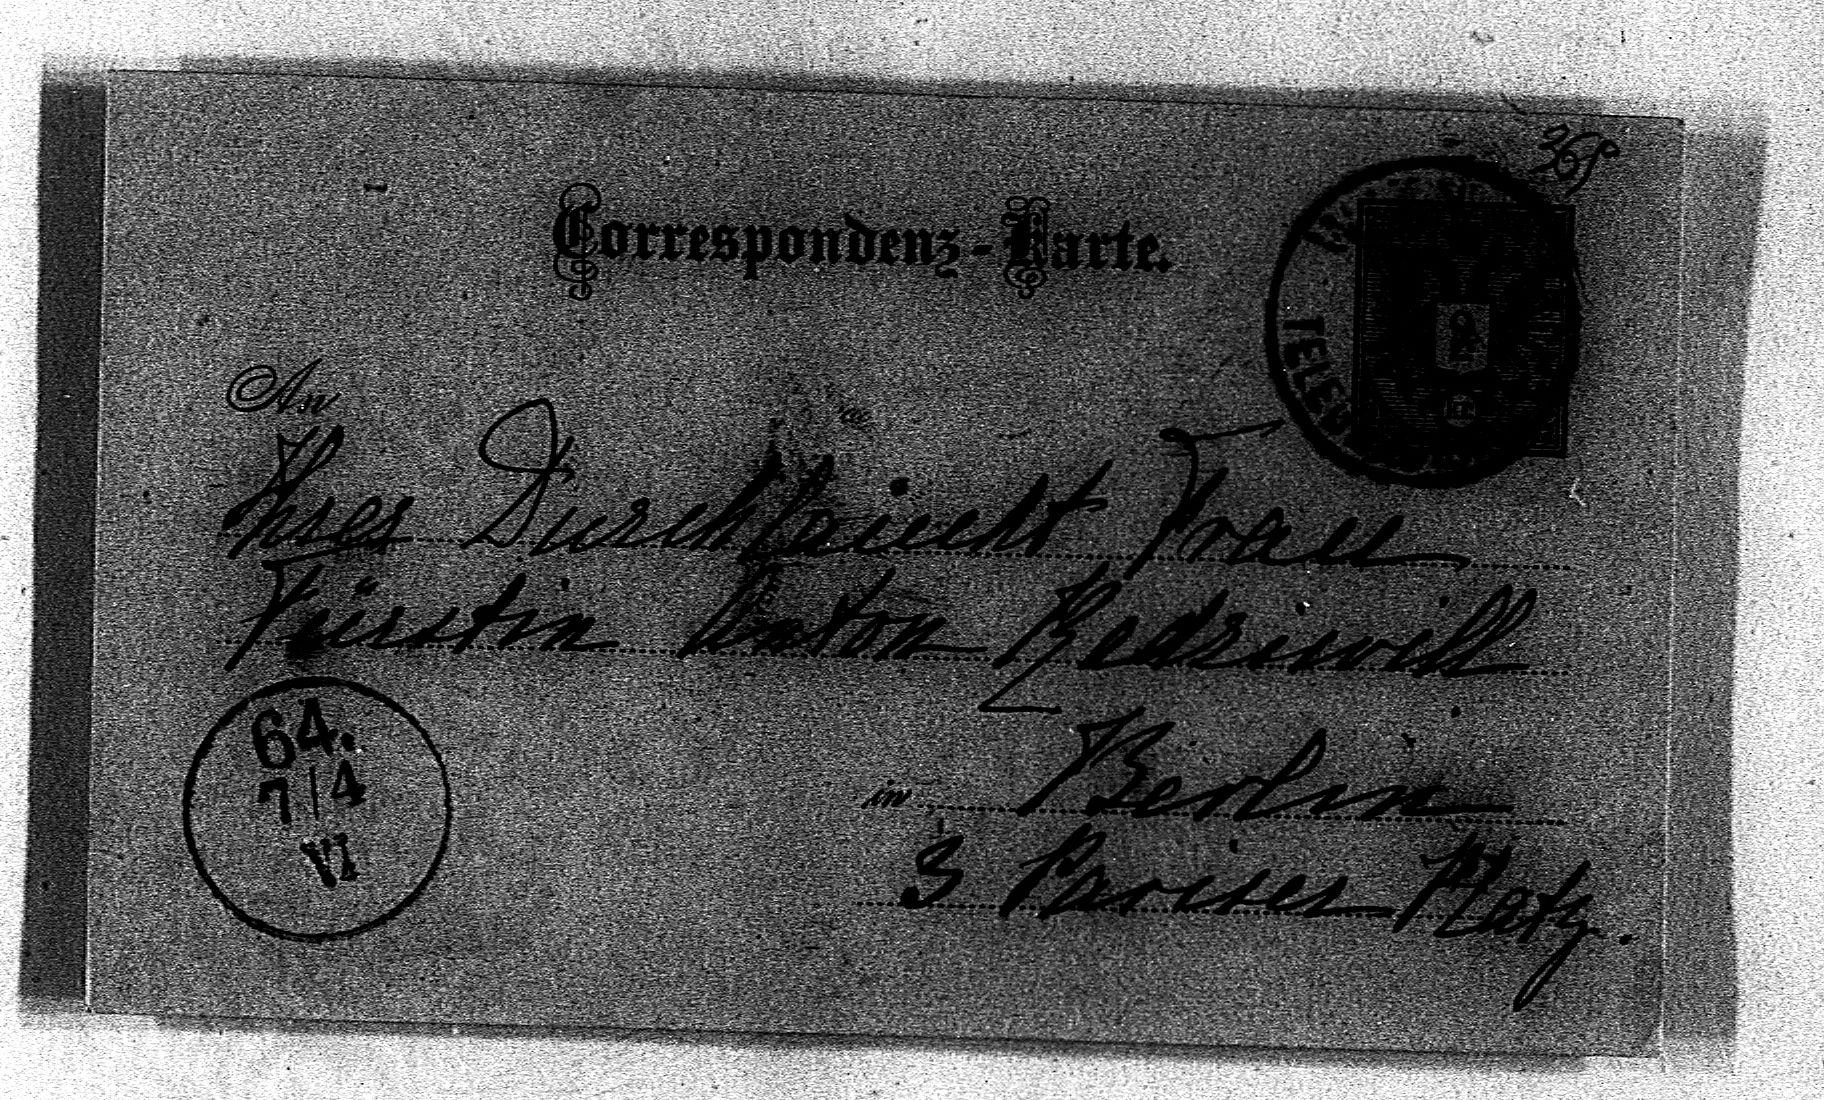 369
Correspondenz-Karte.
TELEG
An
Ihrer Durchlaucht Frau
Fürstin Anton Radziwill
in Berlin
3 Pariser Platz.
64.
7/4
VI